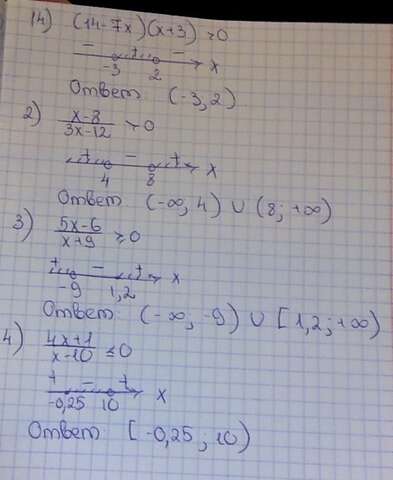 14) (14-7x)(x+3) >0
- + -
-3 2 x
Ответ (-3, 2)
2) x-8 / 3x-12 >0
+ - +
4 8 x
Ответ (-∞, 4) ∪ (8; +∞)
3) 5x-6 / x+9 ≥0
+ - +
-9 1,2 x
Ответ (-∞, -9) ∪ [1,2; +∞)
4) 4x+1 / x-10 ≤0
+ - +
-0,25 10 x
Ответ [-0,25; 10)